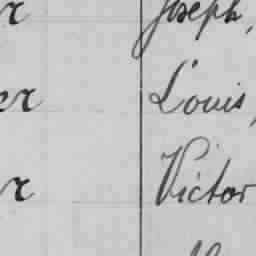 r Joseph,
er Louis,
r Victor